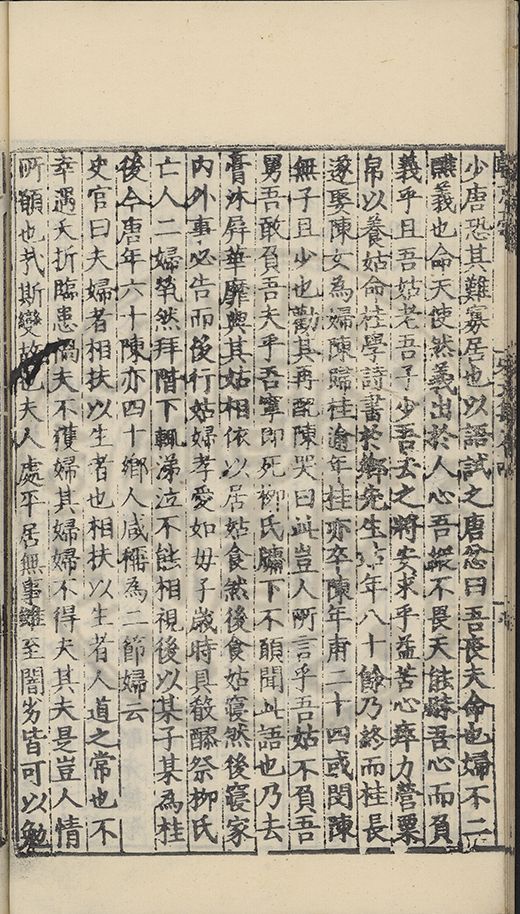 少唐恐其難寡居也以語試之唐忿曰吾喪夫命也婦不二
醮義也命天使然義出於人心吾縱不畏天能歸吾心而負
義乎且吾姑老吾子少吾去之將安求乎益苦心率力營粟
帛以養姑命桂學詩書於鄉先生姑年八十餘乃終而桂長
遂娶陳女為婦陳歸桂逾年桂亦卒陳年甫二十四或閔陳
無子且少也勸其再醮陳哭曰此豈人所言乎吾姑不負吾
舅吾敢負吾夫乎吾寧即死柳氏牖下不願聞此語也乃去
膏沐屏華靡與其姑相依以居姑食然後食姑寢然後寢家
内外事必告而後行姑婦孝愛如毋子歲時具殽醑祭柳氏
亡人二婦煢然拜階下輒涕泣不能相視後以某子某為桂
後今唐年六十陳亦四十鄉人咸稱為二節婦云
史官曰夫婦者相扶以生者也相扶以生者人道之常也不
幸遇夭折臨患禍夫不獲婦其婦婦不得夫其夫是豈人情
所願也㢤斯變故也夫人處平居無事雖至闇劣皆可以勉